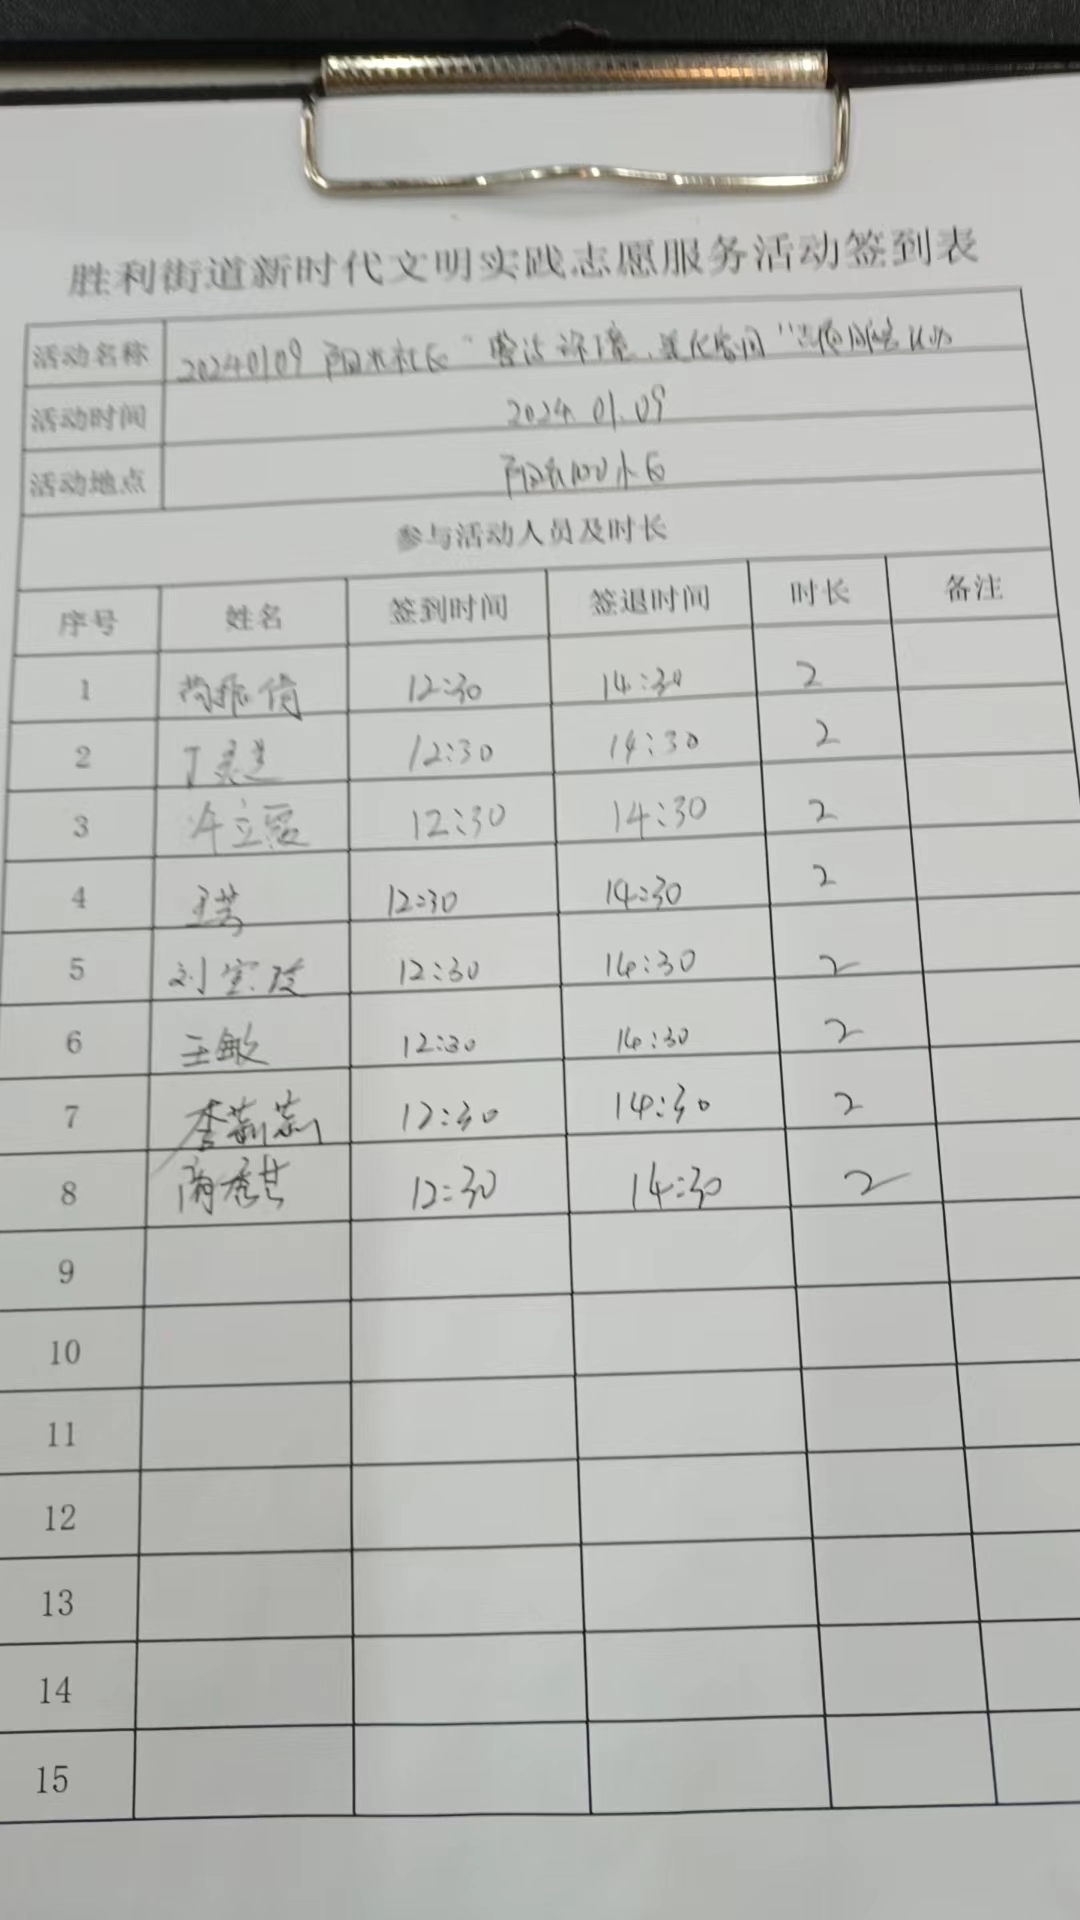 胜利街道新时代文明实践志愿服务活动签到表
活动名称 20240109 阳光社区"整治环境、美化空间"志愿服务活动
活动时间 2024.01.09
活动地点 阳光100小区
参与活动人员及时长
序号 姓名 签到时间 签退时间 时长 备注
1 12:30 14:30 2
2 12:30 14:30 2
3 12:30 14:30 2
4 12:30 14:30 2
5 刘 12:30 14:30 2
6 王敏 12:30 14:30 2
7 李莉莉 12:30 14:30 2
8 12:30 14:30 2
9
10
11
12
13
14
15